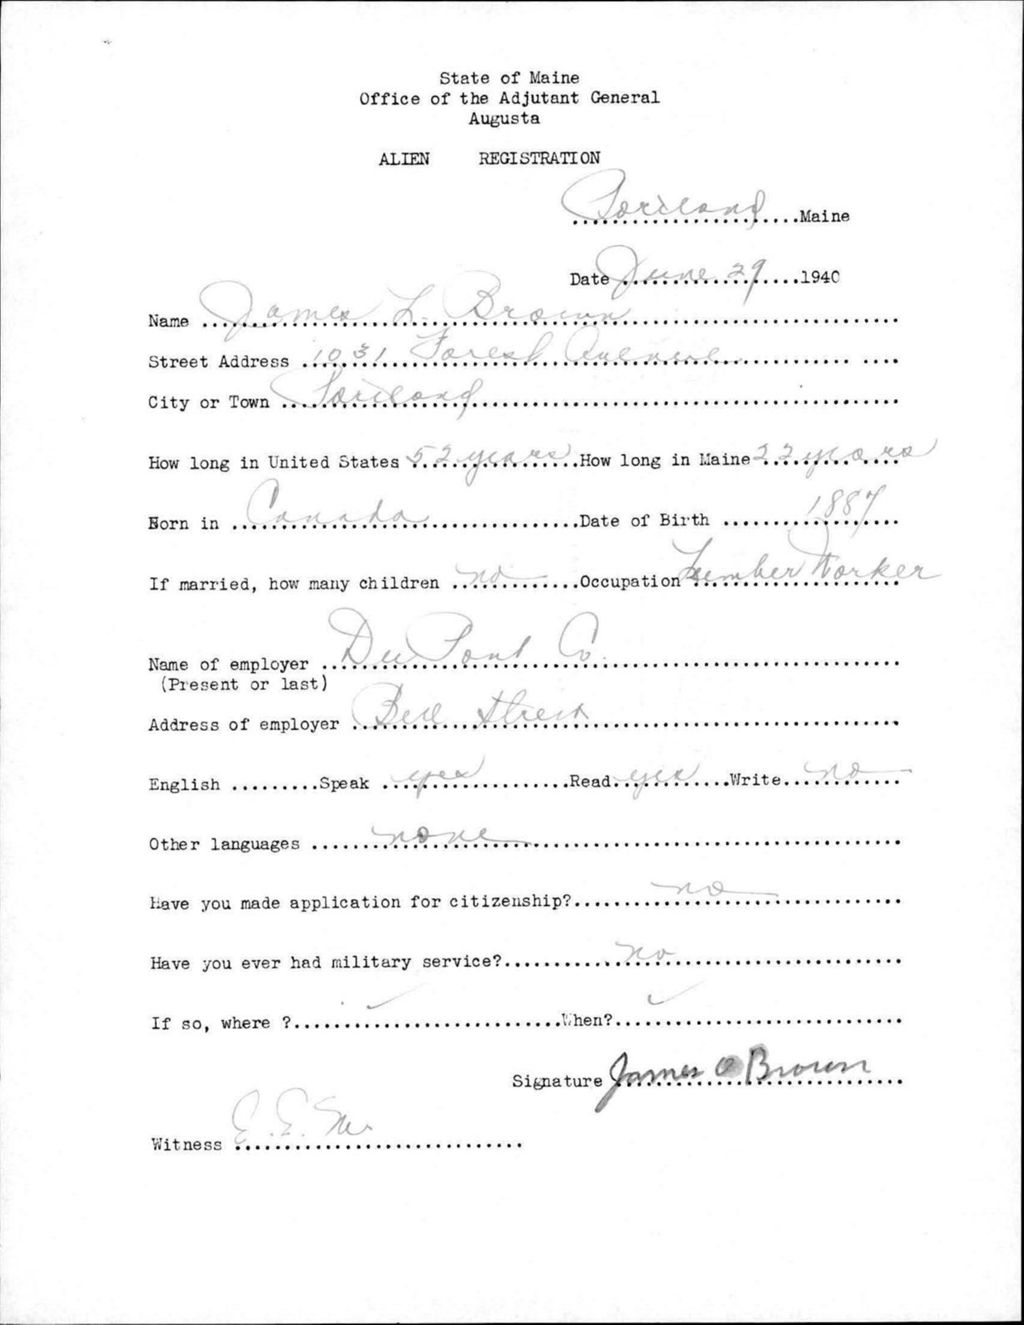 State of Maine
Office of the Adjutant General
Augusta
ALIEN REGISTRATION
Portland Maine
Date June 29 1940
Name James L. Brown
Street Address 1031 Forest Avenue
City or Town Portland
How long in United States 52 years How long in Maine 22 years
Born in Canada Date of Birth 1887
If married, how many children no Occupation Lumber Worker
Name of employer Du Pont Co.
(Present or last)
Address of employer Street
English Speak yes Read yes Write no
Other languages none
Have you made application for citizenship? no
Have you ever had military service? no
If so, where ? When?
Signature James O Brown
Witness E. E.